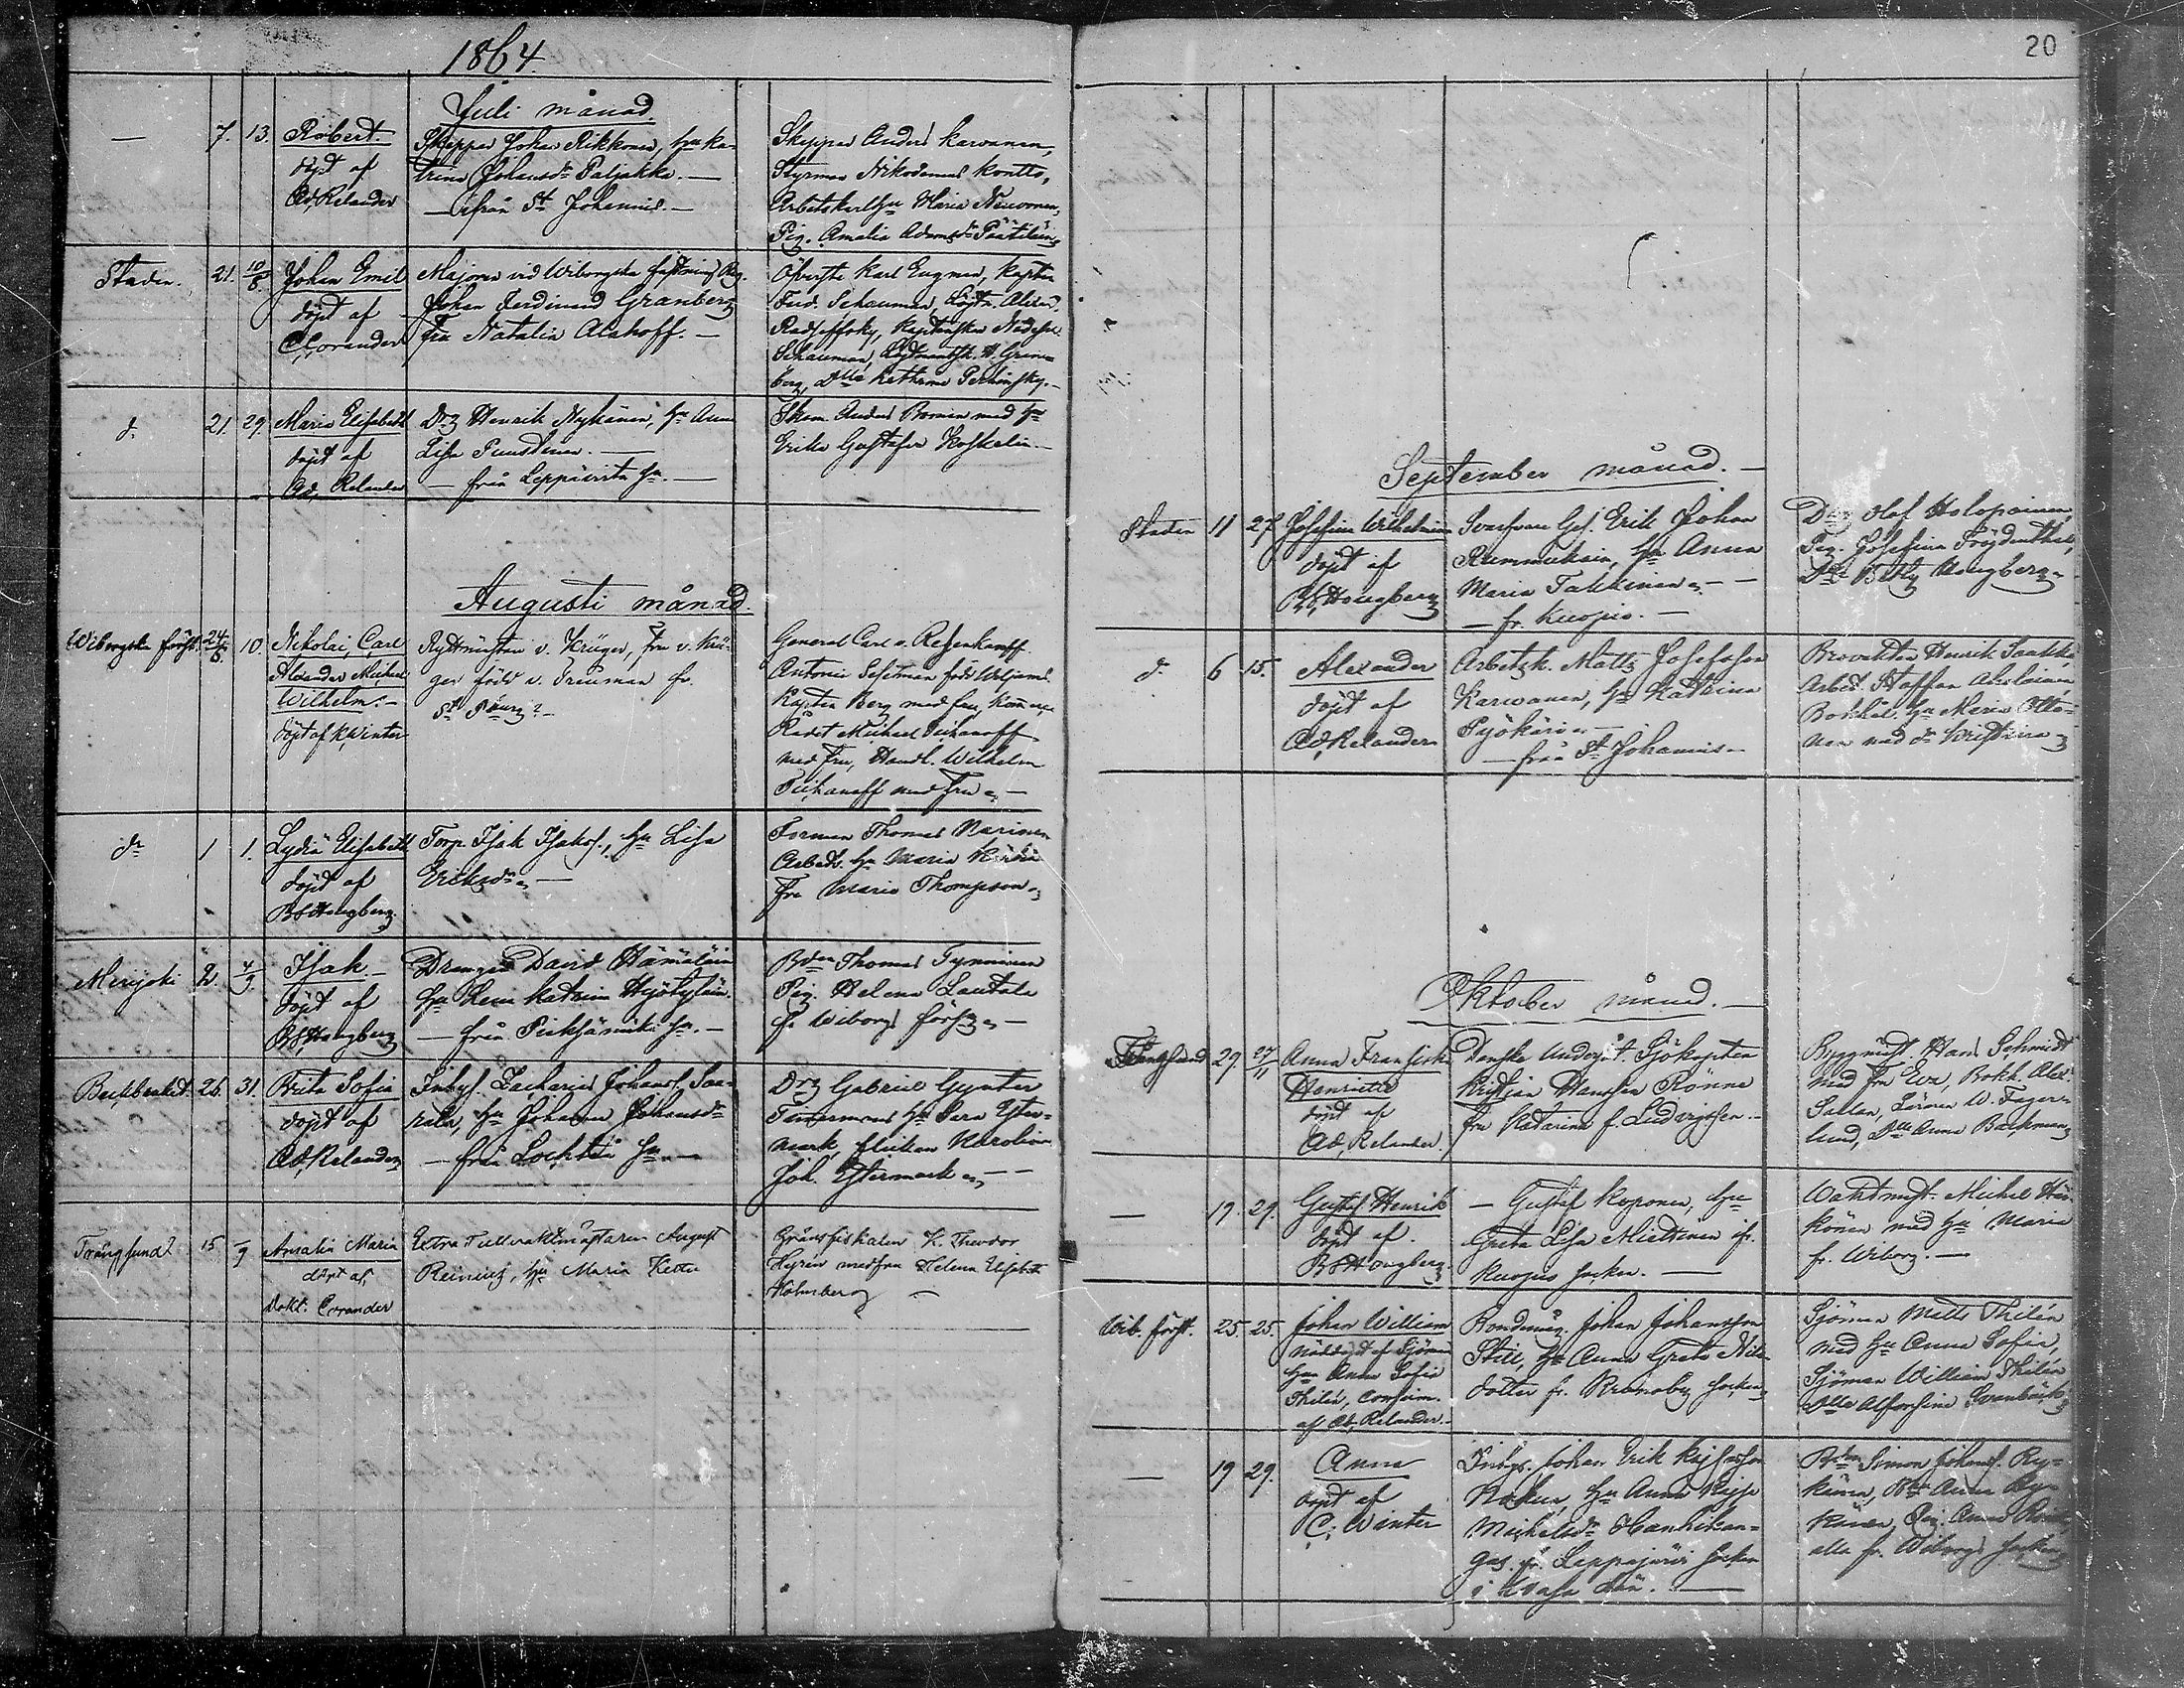 1864.
Juli månad.
— 7. 13. Robert
döpt af
Ad. Relander
Skeppar Johan Rikkonen, hu Ka-
trina Johansdr Paljakka. —
— ifrån St Johannis. —
Skeppar Anders Karvanen,
Styrman Nikodemus Kontto,
Arbetskarlshu Maria
Pig. Amalia Adamsdr
Staden. 21. 10/8. Johan Emil
döpt af
C. Corander
Majoren vid Wiborgska fästnings Reg.
Johan Ferdinand Granberg
fru Natalia Alahoff. —
Öfverste Karl Engman, Kapten
Ferd. Schauman, Löjtn. Alexr.
Kaptenskan
Schauman,
berg, Dlle Katharina
do 21. 29. Maria Elisabeth
döpt af
Ad. Relander
Drg Henrik Nykänen, hu Anna
Lisa Puustinen. —
— från Leppävirta sn. —
Skom. Anders Boman med hu
Erika Gustafva Koskelin. —
Augusti månad.
Wiborgska förstn. 24/5. 10. Nikolai Carl
Alexander Michael
Wilhelm. —
döpt af K. Winter
Ryttmästar v. Krüger, fru v. Krü-
ger född v. Treuman fr.
St P:burg. —
General Carl v.
Antonie född
Kapten Berg med fru,
Rådet Michael Tichanoff
med fru, Handl. Wilhelm
Tichanoff med fru. —
do 1 1. Lydia Elisabeth
döpt af
B. Hougberg.
Torp. Isak Isaks., hu Lisa
Eriksdr. —
Forman Thomas Narinen
Arbets. hu Maria
fru Maria Thompson.
Merijoki 2. 4/9. Isak —
döpt af
B. Hougberg
Drängen David Hämäläin
hu Lena Katrina
— från Pieksämäki sn. —
Bdn Thomas Tynninen
Pig. Helena Lautala
fr. Wiborgs förs. —
26. 31. Brita Sofia
döpt af
Ad. Relander
Inhys. Zacharias Johanss. Saa-
rela, hu Johanna Johansdr
— från Lochteå sn. —
Drg Gabriel Gynter
Timmermans hu Sara Ester-
mark, flickan Karolina
Joh. Estermark. —
Trångsund 15 -/9 Amalia Maria
döpt af
Dokt. Corander
Extra Tullvaktmästaren August
Reinius, hu Maria
Gränsfiskalen K. Theodor
med fru Helena Elisabeth
Holmberg —
20
September månad. —
Staden 11 27. Josefina Wilhelmina
döpt af
B. Hougberg
Svarfvare Ges. Erik Johan
Rummukain, hu Anna
Maria Takkinen. —
— fr. Kuopio. —
Drg Olof Holopainen,
Pig. Josefina Fröjdenthal,
Dlle Betty Hougberg.
do 6 15. Alexander
döpt af
Ad. Relander
Arbetsk. Matts Josefsson
Karvanen, hu Katrina
Pyökäri. —
— från St Johannis. —
Henrik Saukko,
Arbet. Staffan
hu Maria Otto-
nen med dr Kristina.
Oktober månad. —
Trångsund 29. 27/11 Anna Fransiska
Henriette
döpt af
Ad. Relander.
Danske Undersåt. Sjökapten
Kristian Hansen Rönne
fru Katarina f. Ludvigsen. —
Byggmäst. Hans Schmidt
med fru Eva, Bokh. Alex.
W. Fager-
lund, Dlle Anna Backman.
— 19. 29. Gustaf Henrik
döpt af
B. Hougberg.
— Gustaf Koponen, hu
Greta Lisa Miettinen ifr.
Kuopio socken. —
Waktmäst. Michel Här-
könen med hu Maria
fr. Wiborg. —
Wib. förstn. 25. 25. Johan William
nöddöpt af Sjöman
hu Anna Sofia
Thilén, confirm.
af Ad. Relander. —
Bondemåg. Johan Johansson
Still, hu Anna Greta Nils-
dotter fr. Kronoby socken.
Sjöman Matts Thilén
med hu Anna Sofia,
Sjöman William Thilén,
Dlle Alfonsina Svenbäck.
— 19 29. Anna
döpt af
C. Winter
Inhys. Johan Erik Kajsasson
hu Anna Kajsa
Michelsdr Hanhikan-
gas fr. Lappajärvi socken
i Wasa län. —
Bdn Simon Johanss. Ry-
könen, Anna Ry-
könen, Pig. Anna
alla fr. Wiborgs socken.